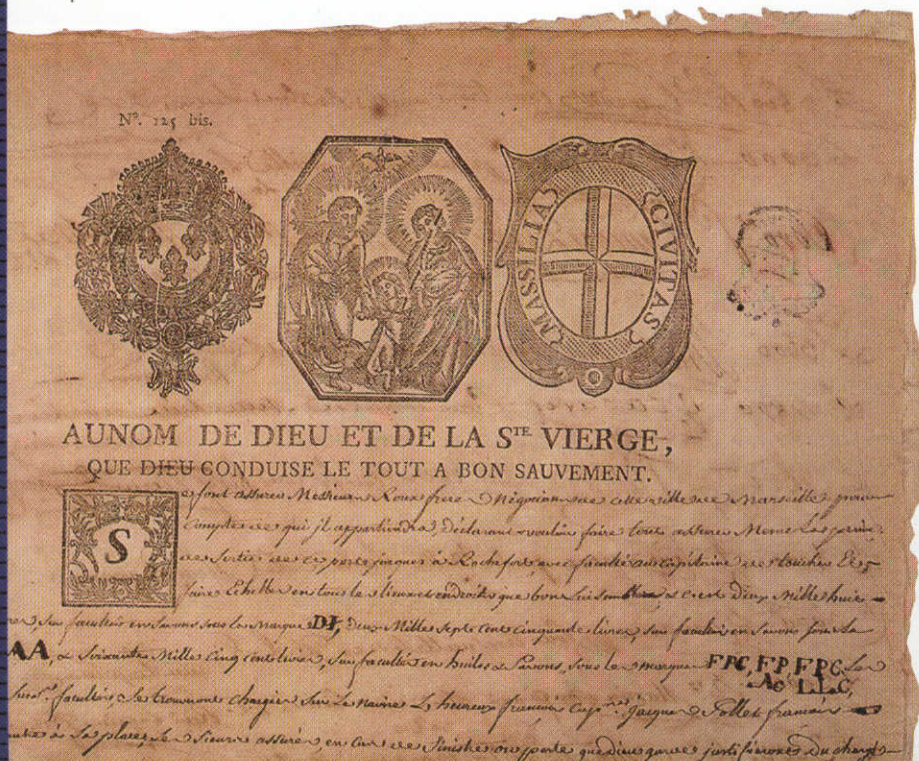 N°. 125 bis.
MASSILIA CIVITAS
AUNOM DE DIEU ET DE LA STE VIERGE,
QUE DIEU CONDUISE LE TOUT A BON SAUVEMENT.
S
e font assurer Messieurs Roux frere Négocians de cette ville de Marseille, pour
Compte de qui jl appartiendra, Déclarant vouloir faire tout assurer Meme
de Sortie de ce port jusques à Rochefort, avec faculté au Capitaine de toucher Et
faire Echelle en tous les lieux et endroits que bon lui semblera, c'est Deux Mille huit
sur facultés en Savons sous la marque DJ, deux Mille sept cent cinquante livres, sur facultés en Savons sous la
AA, & soixante Mille Cinq cent livres, sur facultés en huiles & Savons, sous les marques FPC, FP, FPC,
Ac LLC,
facultés, se trouvant chargées Sur Le navire L'heureux françois Cape. jacques Pollet français
à Sa place, les Sieurs assurés, en cas de Sinistre on perte que dieu garde justifieront du charg-